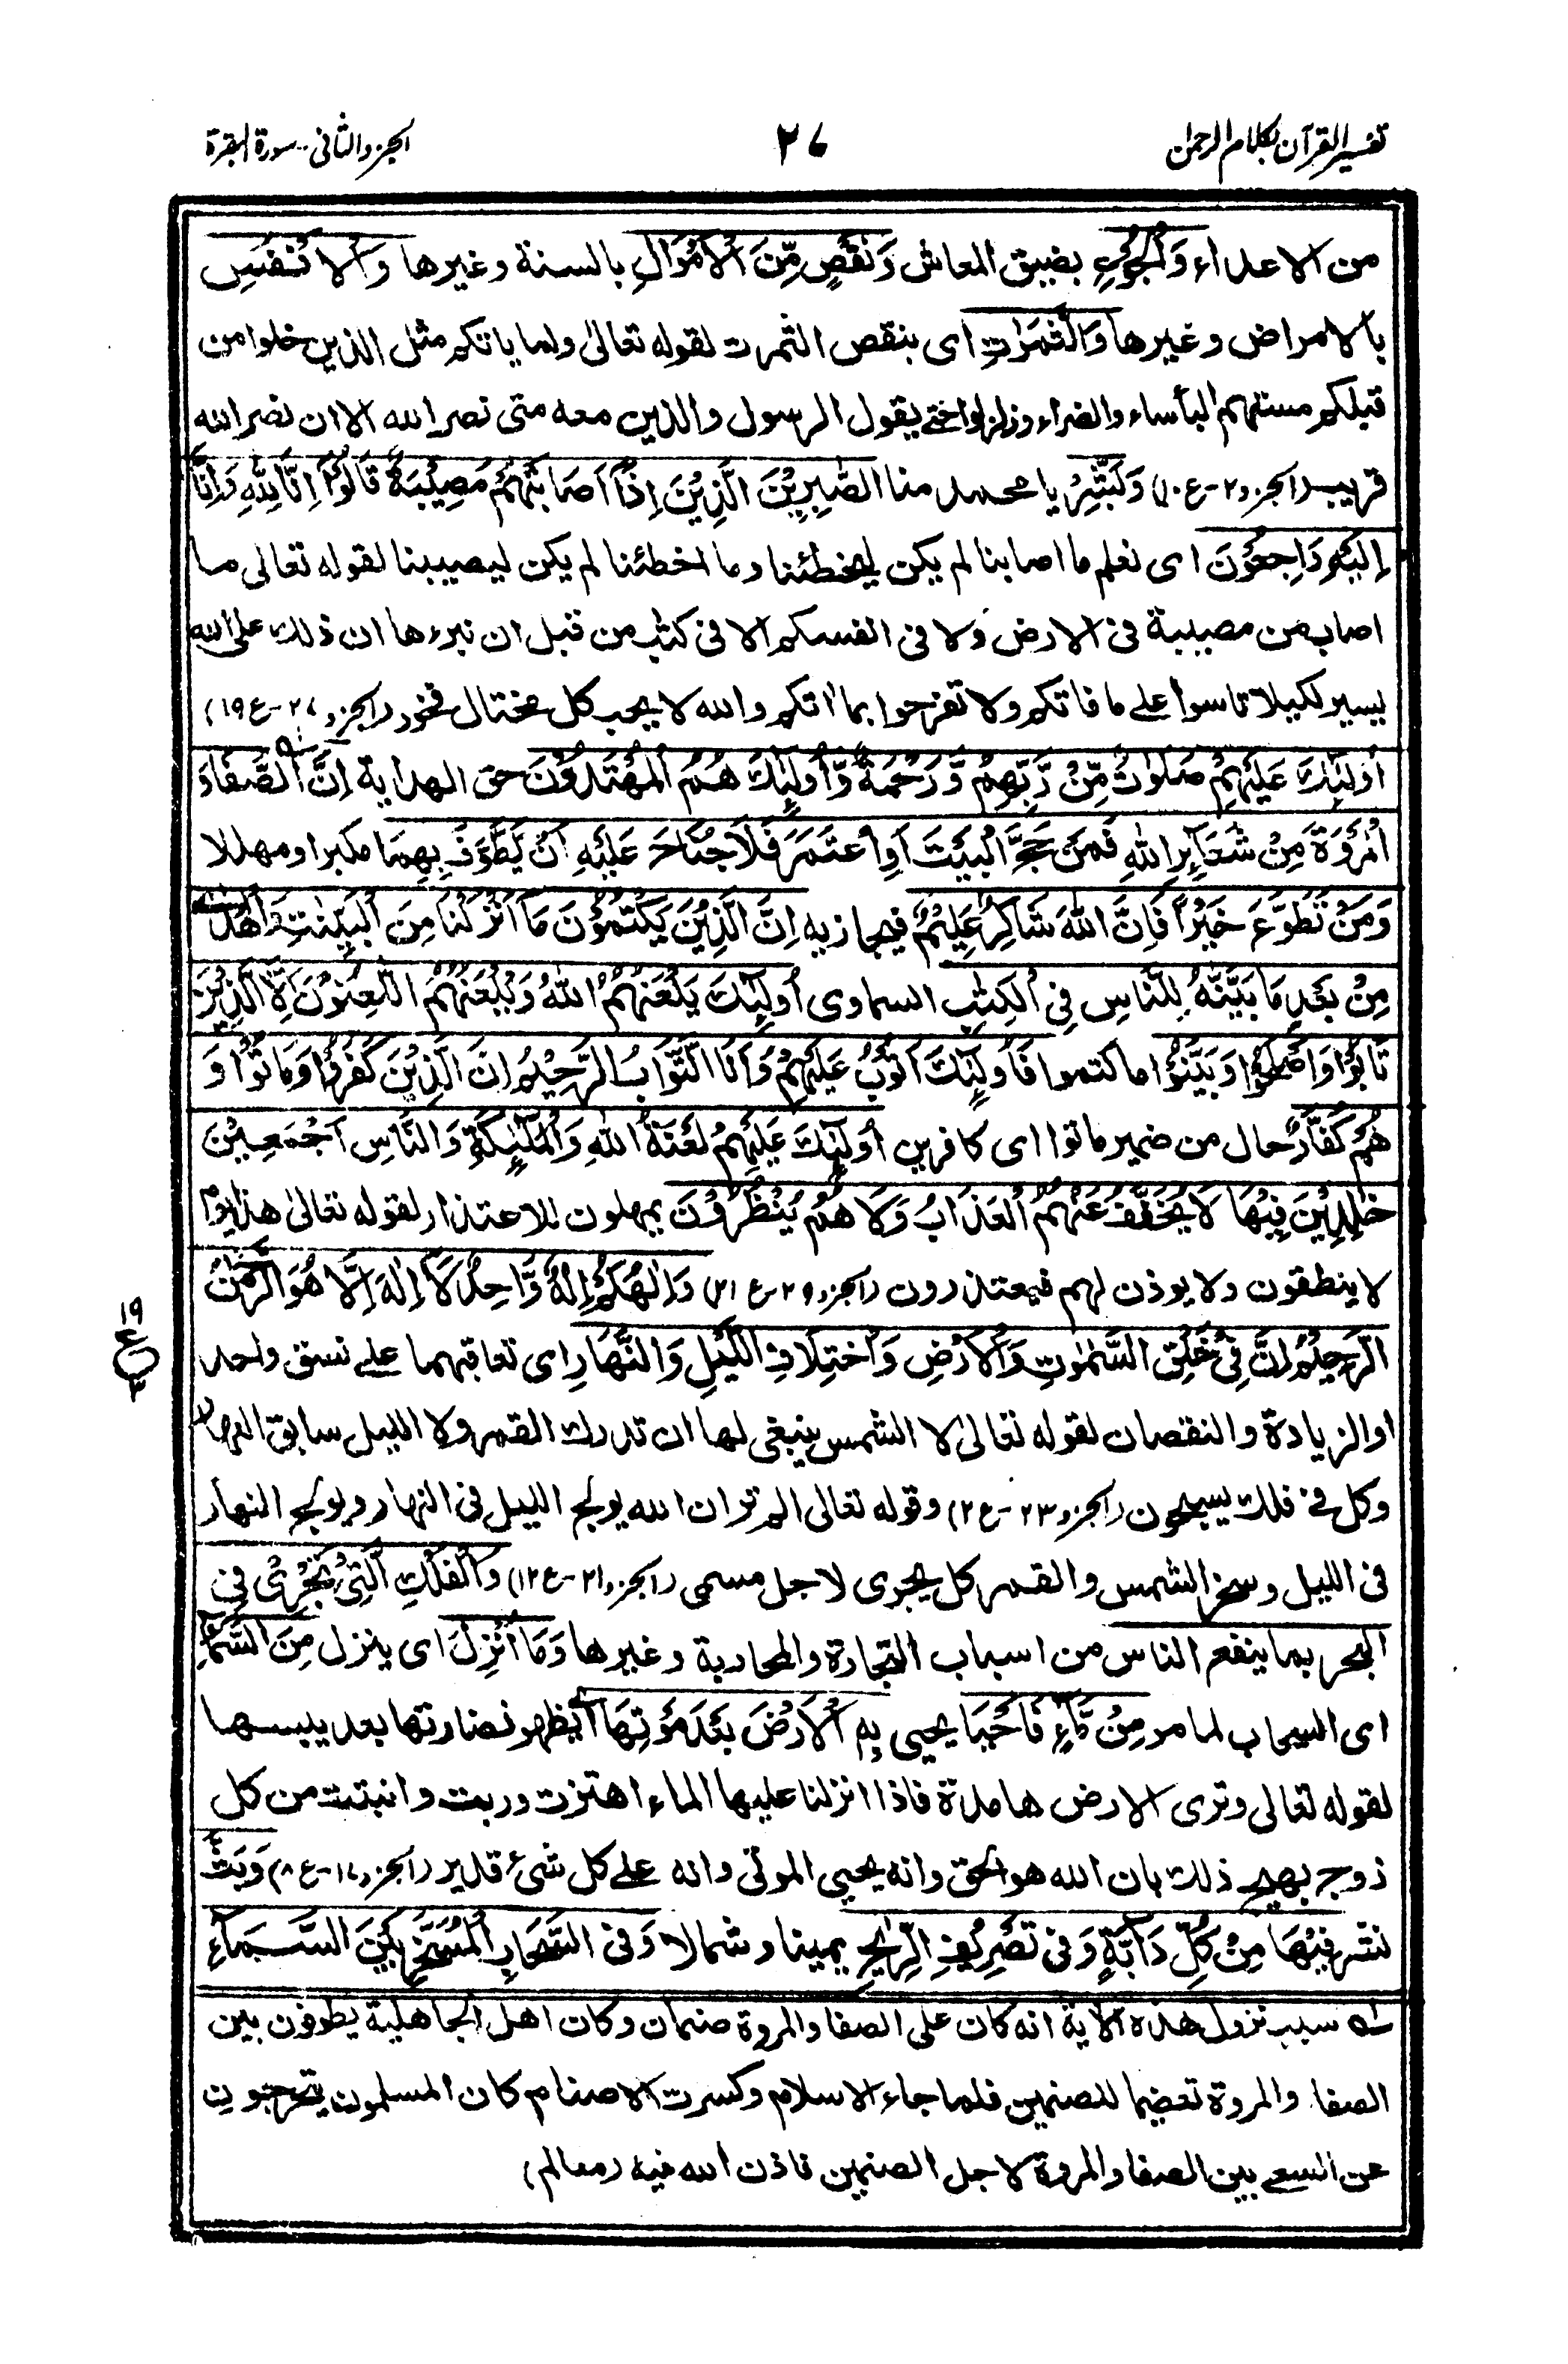 تفسير القرآن بكلام الرحمن
٢٧
الجزء الثانى - سورة البقرة
من الاعداء وَالْجُوْعِ بضيق المعاش وَنَقْصٍ مِّنَ الْاَمْوَالِ بالسنة وغيرها وَالْاَنْفُسِ
بالامراض وغيرها وَالثَّمَرٰتِ اى بنقص الثمرت لقوله تعالى ولما ياتكم مثل الذين خلوا من
قبلكم مستهم البأساء والضراء وزلزلوا حتى يقول الرسول والذين معه متى نصر الله الا ان نصر الله
قريب (الجزء ٢-ع ١٠) وَبَشِّرِ يا محمد منا الصّٰبِرِيْنَ الَّذِيْنَ اِذَا اَصَابَتْهُمْ مُصِيْبَةٌ قَالُوْا اِنَّا لِلّٰهِ وَاِنَّا
اِلَيْهِ رَاجِعُوْنَ اى نعلم ما اصابنا لم يكن ليخطئنا وما اخطئنا لم يكن ليصيبنا لقوله تعالى ما
اصاب من مصيبة فى الارض ولا فى انفسكم الا فى كتٰب من قبل ان نبرءها ان ذلك على الله
يسير لكيلا تاسوا على ما فاتكم ولا تفرحوا بما اٰتكم والله لا يحب كل مختال فخور (الجزء ٢٧-ع ١٩)
اُولٰٓئِكَ عَلَيْهِمْ صَلَوٰتٌ مِّنْ رَّبِّهِمْ وَرَحْمَةٌ وَّاُولٰٓئِكَ هُمُ الْمُهْتَدُوْنَ حق الهداية اِنَّ الصَّفَا وَ
الْمَرْوَةَ مِنْ شَعَآئِرِ اللهِ فَمَنْ حَجَّ الْبَيْتَ اَوِ اعْتَمَرَ فَلَا جُنَاحَ عَلَيْهِ اَنْ يَّطَّوَّفَ بِهِمَا مكبرا ومهللا
وَمَنْ تَطَوَّعَ خَيْرًا فَاِنَّ اللهَ شَاكِرٌ عَلِيْمٌ فيجازيه اِنَّ الَّذِيْنَ يَكْتُمُوْنَ مَا اَنْزَلْنَا مِنَ الْبَيِّنٰتِ وَالْهُدٰى
مِنْ بَعْدِ مَا بَيَّنّٰهُ لِلنَّاسِ فِى الْكِتٰبِ السماوى اُولٰٓئِكَ يَلْعَنُهُمُ اللهُ وَيَلْعَنُهُمُ اللّٰعِنُوْنَ اِلَّا الَّذِيْنَ
تَابُوْا وَاَصْلَحُوْا وَبَيَّنُوْا ما كتموا فَاُولٰٓئِكَ اَتُوْبُ عَلَيْهِمْ وَاَنَا التَّوَّابُ الرَّحِيْمُ اِنَّ الَّذِيْنَ كَفَرُوْا وَمَاتُوْا وَ
هُمْ كُفَّارٌ حال من ضمير ماتوا اى كافرين اُولٰٓئِكَ عَلَيْهِمْ لَعْنَةُ اللهِ وَالْمَلٰٓئِكَةِ وَالنَّاسِ اَجْمَعِيْنَ
خٰلِدِيْنَ فِيْهَا لَا يُخَفَّفُ عَنْهُمُ الْعَذَابُ وَلَا هُمْ يُنْظَرُوْنَ يمهلون للاعتذار لقوله تعالىٰ هذا يوم
لا ينطقون ولا يوذن لهم فيعتذرون (الجزء ٢٩-ع ٢١) وَاِلٰهُكُمْ اِلٰهٌ وَّاحِدٌ لَا اِلٰهَ اِلَّا هُوَ الرَّحْمٰنُ
الرَّحِيْمُ اِنَّ فِىْ خَلْقِ السَّمٰوٰتِ وَالْاَرْضِ وَاخْتِلَافِ اللَّيْلِ وَالنَّهَارِ اى تعاقبهما على نسق واحد
١٩
ع
٣
او الزيادة والنقصان لقوله تعالىٰ لا الشمس ينبغى لها ان تدرك القمر ولا الليل سابق النهار
وكل فى فلك يسبحون (الجزء ٢٣-ع ٢) وقوله تعالى الم تر ان الله يولج الليل فى النهار ويولج النهار
فى الليل وسخر الشمس والقمر كل يجرى لاجل مسمى (الجزء ٢١-ع ١٢) وَالْفُلْكِ الَّتِىْ تَجْرِىْ فِى
البحر بما ينفع الناس من اسباب التجارة والمحاربة وغيرها وَمَا اَنْزَلَ اى ينزل مِنَ السَّمَآءِ
اى السحاب لما مر مِنْ مَّآءٍ فَاَحْيَا يحيى بِهِ الْاَرْضَ بَعْدَ مَوْتِهَا اى يظهر نضارتها بعد يبسها
لقوله تعالى وترى الارض هامدة فاذا انزلنا عليها الماء اهتزت وربت وانبتت من كل
زوج بهيج ذلك بان الله هو الحق وانه يحيى الموتى وانه على كل شىء قدير (الجزء ١٧-ع ٨) وَبَثَّ
نشر فِيْهَا مِنْ كُلِّ دَآبَّةٍ وَفى تَصْرِيْفِ الرِّيٰحِ يمينا وشمالا وَفى السَّحَابِ الْمُسَخَّرِ بَيْنَ السَّمَآءِ
سبب نزول هذه الآية انه كان على الصفا والمروة صنمان وكان اهل الجاهلية يطوفون بين
الصفا والمروة تعضيما للصنمين فلما جاء الاسلام وكسرت الاصنام كان المسلمون يتحرجون
عن السعى بين الصفا والمروة لاجل الصنمين فاذن الله فيه (معالم)